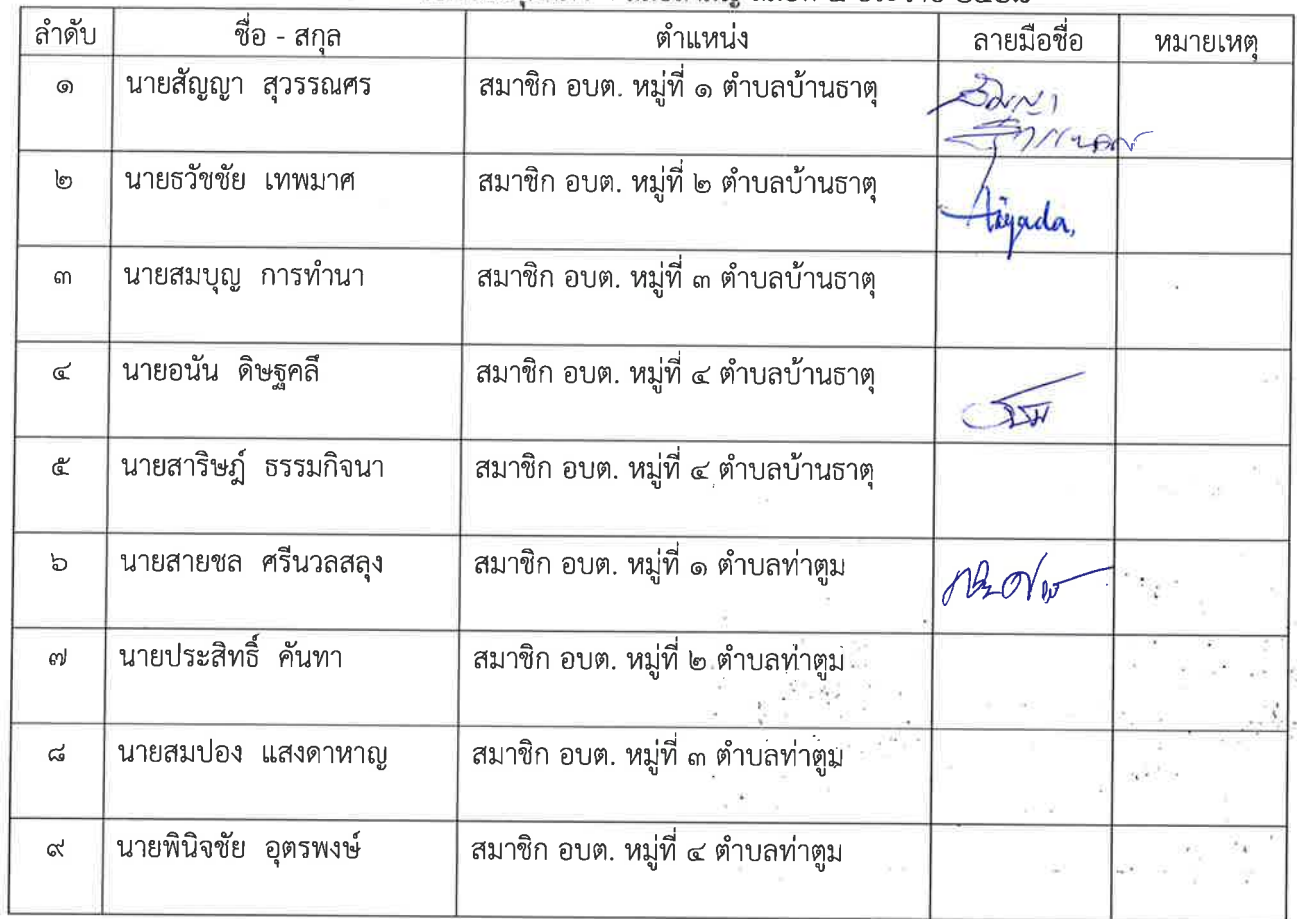 ลำดับ ชื่อ - สกุล ตำแหน่ง ลายมือชื่อ หมายเหตุ
๑ นายสัญญา สุวรรณศร สมาชิก อบต. หมู่ที่ ๑ ตำบลบ้านธาตุ สัญญา
๒ นายธวัชชัย เทพมาศ สมาชิก อบต. หมู่ที่ ๒ ตำบลบ้านธาตุ
๓ นายสมบุญ การทำนา สมาชิก อบต. หมู่ที่ ๓ ตำบลบ้านธาตุ
๔ นายอนัน ดิษฐคลี สมาชิก อบต. หมู่ที่ ๔ ตำบลบ้านธาตุ
๕ นายสาริษฎ์ ธรรมกิจนา สมาชิก อบต. หมู่ที่ ๔ ตำบลบ้านธาตุ
๖ นายสายชล ศรีนวลสลุง สมาชิก อบต. หมู่ที่ ๑ ตำบลท่าตูม
๗ นายประสิทธิ์ คันทา สมาชิก อบต. หมู่ที่ ๒ ตำบลท่าตูม
๘ นายสมปอง แสงดาหาญ สมาชิก อบต. หมู่ที่ ๓ ตำบลท่าตูม
๙ นายพินิจชัย อุตรพงษ์ สมาชิก อบต. หมู่ที่ ๔ ตำบลท่าตูม